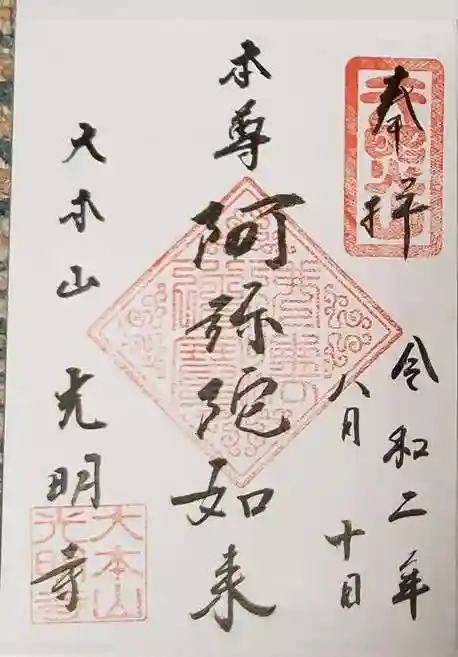 奉拝
令和二年
八月十日
本尊
阿弥陀如来
大本山 光明寺
大本山
光明寺